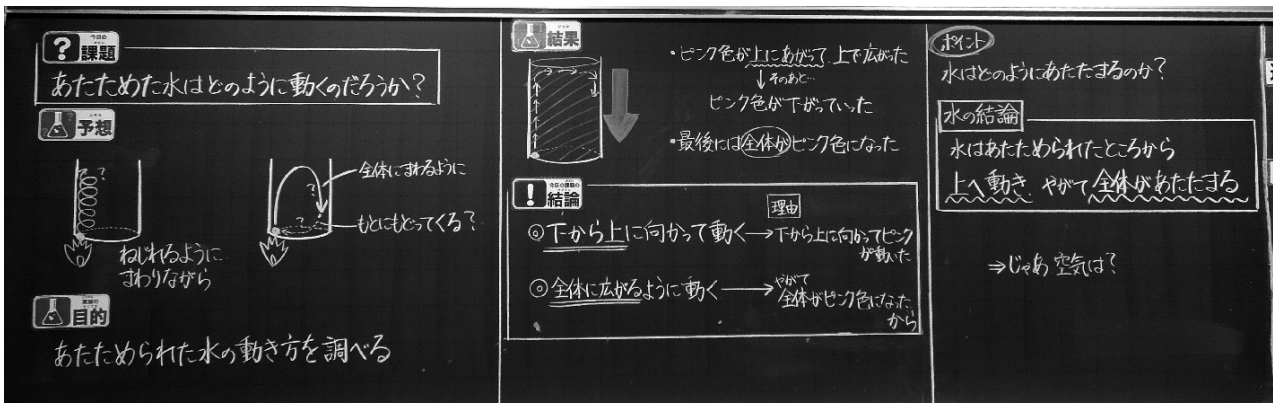 今日の
? 課題
あたためた水はどのように動くのだろうか？
予想
?
ねじれるように
まわりながら
?
?
全体にまわるように
もとにもどってくる？
目的
あたためられた水の動き方を調べる
結果
・ピンク色が上にあがって、上で広がった
↓そのあと…
ピンク色が下がっていった
・最後には全体がピンク色になった
! 今日の課題の
結論
理由
◎下から上に向かって動く→下から上に向かってピンク
が動いた
◎全体に広がるように動く→やがて
全体がピンク色になった
から
ポイント
水はどのようにあたたまるのか？
水の結論
水はあたためられたところから
上へ動き やがて 全体があたたまる
⇒じゃあ 空気は？